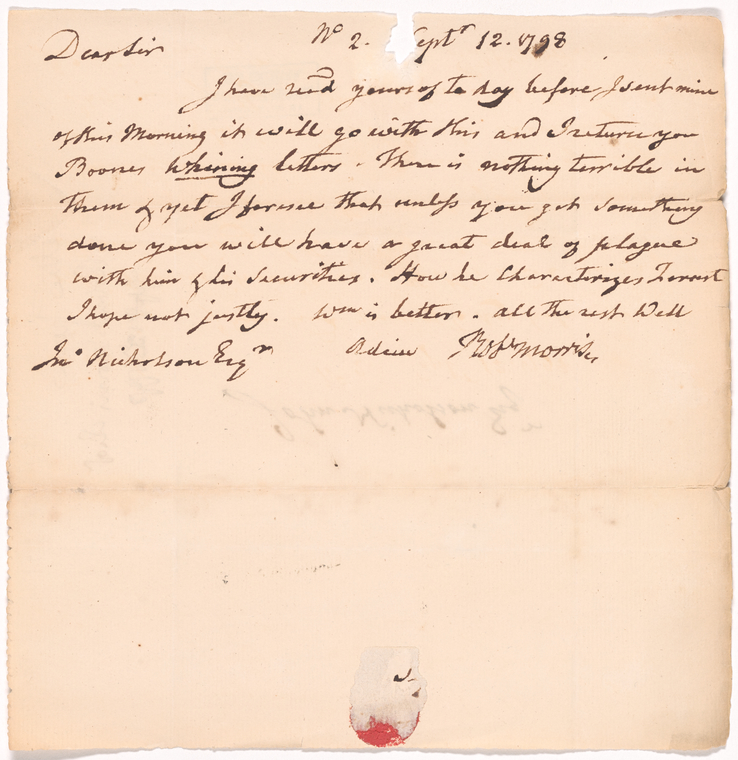 Dear Sir No 2. Septr 12. 1798
I have recd yours of to day before I sent mine
of this Morning it will go with this and I return you
Boones whining letters. There is nothing terrible in
them & yet I foresee that unless you get something
done you will have a great deal of plague
with him & his Securities. How he Characterizes Forrest
I hope not justly. Wm is better. all the rest Well
Jno Nicholson Esqr Adieu Robt Morris